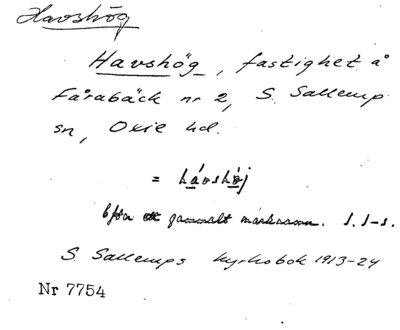 Havshög
Havshög, fastighet å
Fårabäck nr 2, S. Sallerup
sn, Oxie hd.
= hávshö̀j
Efter ett gammalt marknamn. I. I-s.
S. Sallerups kyrkobok 1913-24
Nr 7754